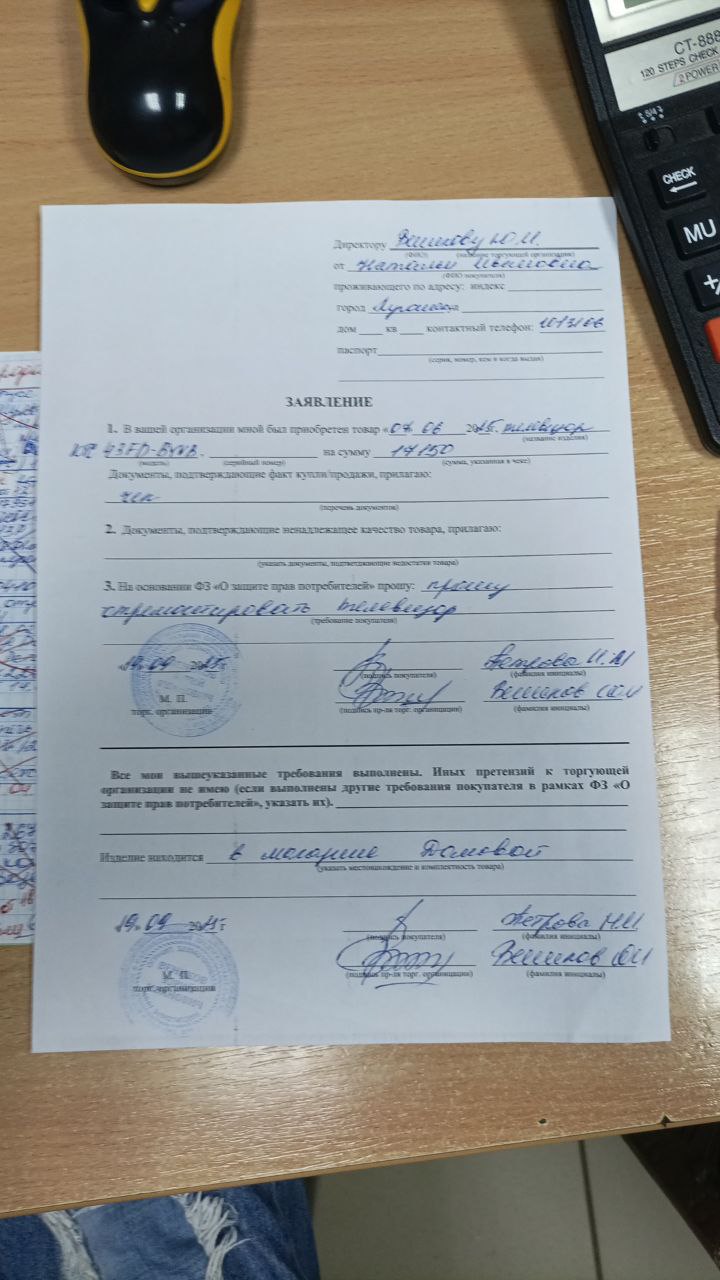 CT-888
120 STEPS CHECK
2 POWER
CHECK
MU
Директору Вешкову Ю.И.
(ФИО) (название торгующей организации)
от Натальи Ивановна
(ФИО покупателя)
проживающего по адресу: индекс
город
дом кв контактный телефон: 1013106
паспорт
(серия, номер, кем и когда выдан)
ЗАЯВЛЕНИЕ
1. В вашей организации мной был приобретен товар «07 06 2025г. телевизор
(название изделия)
на сумму 17150
(модель) (серийный номер) (сумма, указанная в чеке)
Документы, подтверждающие факт купли/продажи, прилагаю:
чек
(перечень документов)
2. Документы, подтверждающие ненадлежащее качество товара, прилагаю:
(указать документы, подтверждающие недостатки товара)
3. На основании ФЗ «О защите прав потребителей» прошу: прошу
отремонтировать телевизор
(требование покупателя)
19.09 Петрова Н.И
(подпись покупателя) (фамилия инициалы)
М. П. Вешков
торг. организации (подпись пр-ля торг. организации) (фамилия инициалы)
Все мои вышеуказанные требования выполнены. Иных претензий к торгующей
организации не имею (если выполнены другие требования покупателя в рамках ФЗ «О
защите прав потребителей», указать их).
Изделие находится в магазине Домовой
(указать местонахождение и комплектность товара)
19.09 Петрова Н.И.
(подпись покупателя) (фамилия инициалы)
М. П. Вешков
торг. организации (подпись пр-ля торг. организации) (фамилия инициалы)